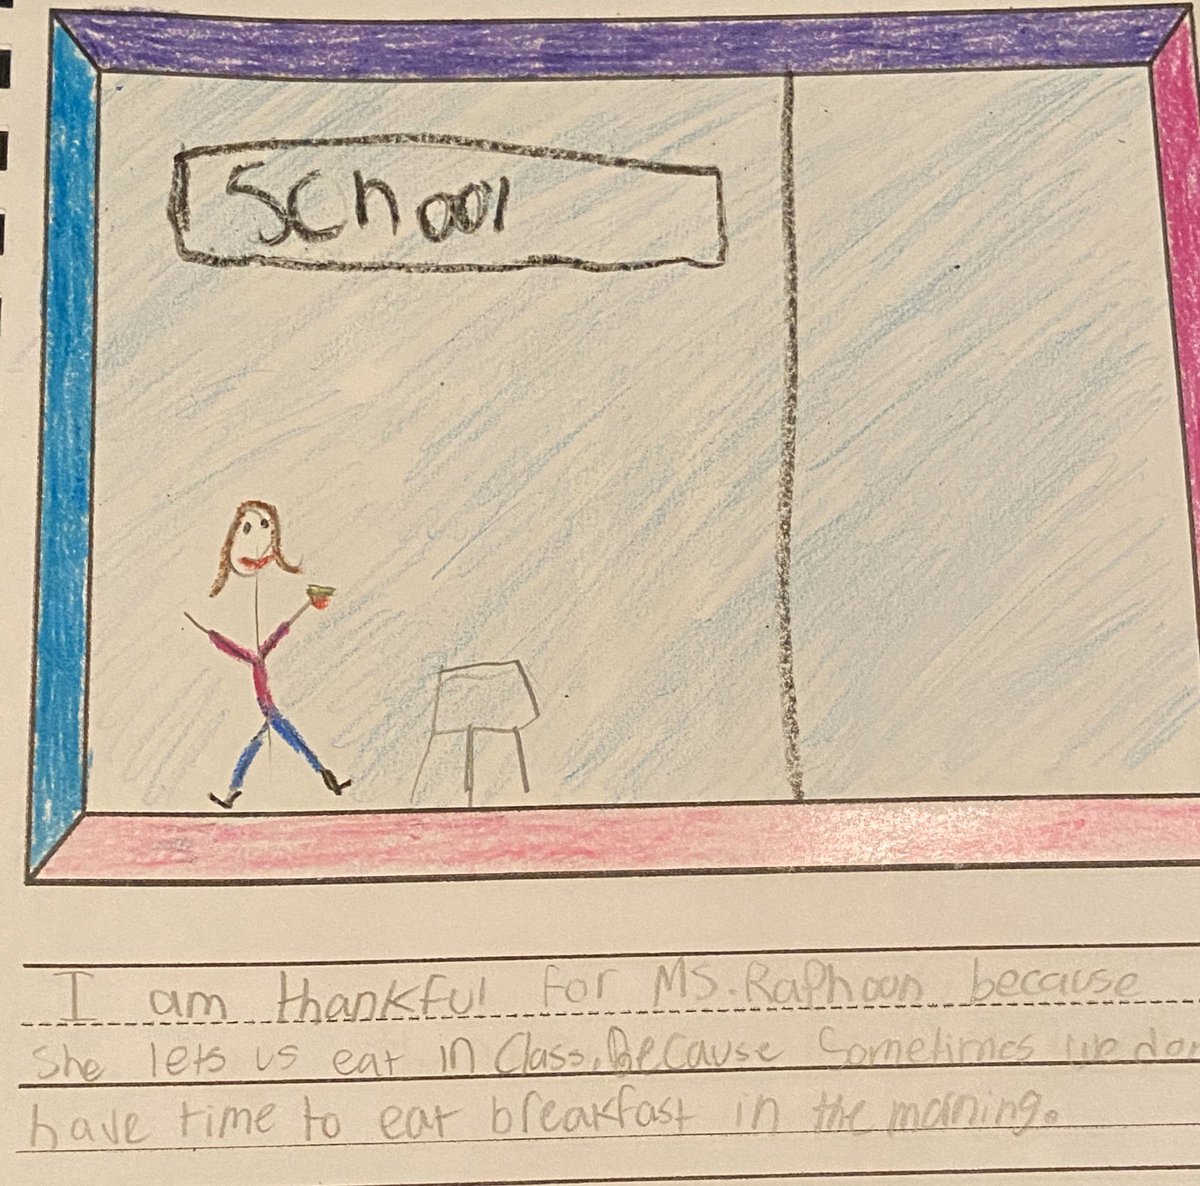 School
I am thankful for MS. Raphoon because
She lets us eat in Class. Because Sometimes we
have time to eat breakfast in the morning.